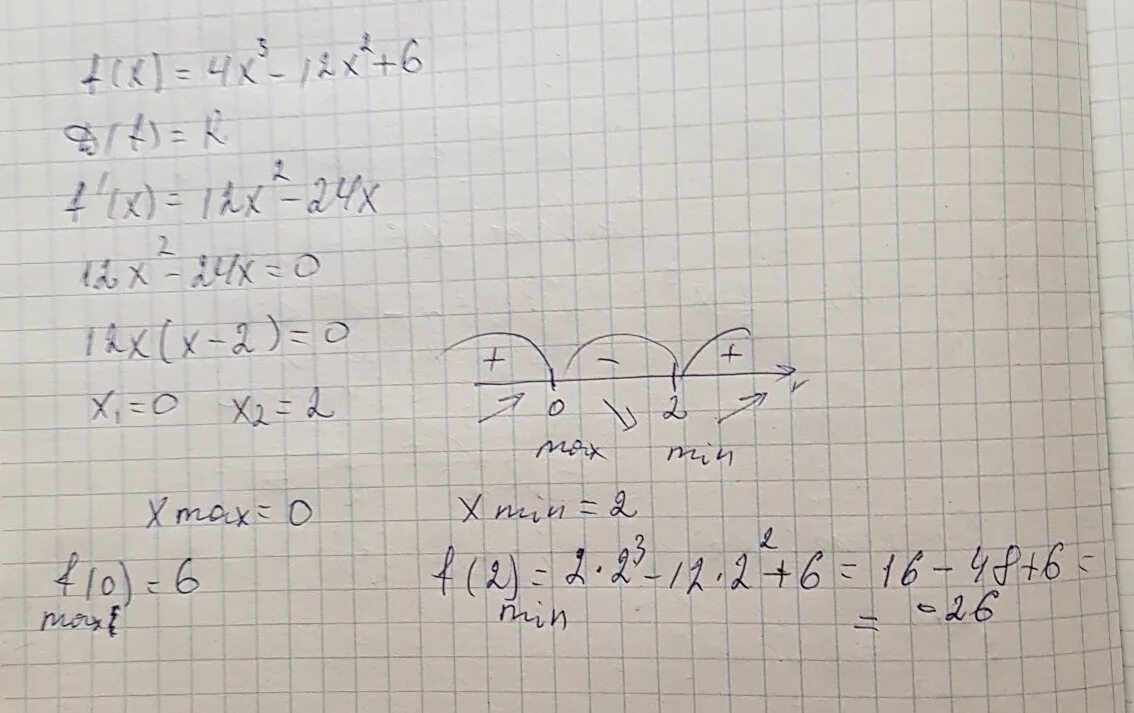 f(x) = 4x³ - 12x² + 6
D(f) = R
f'(x) = 12x² - 24x
12x² - 24x = 0
12x(x - 2) = 0
x₁ = 0 x₂ = 2
+ - +
0 2 x
max min
x max = 0 x min = 2
f(0) = 6 f(2) = 2·2³ - 12·2² + 6 = 16 - 48 + 6 =
max min = -26